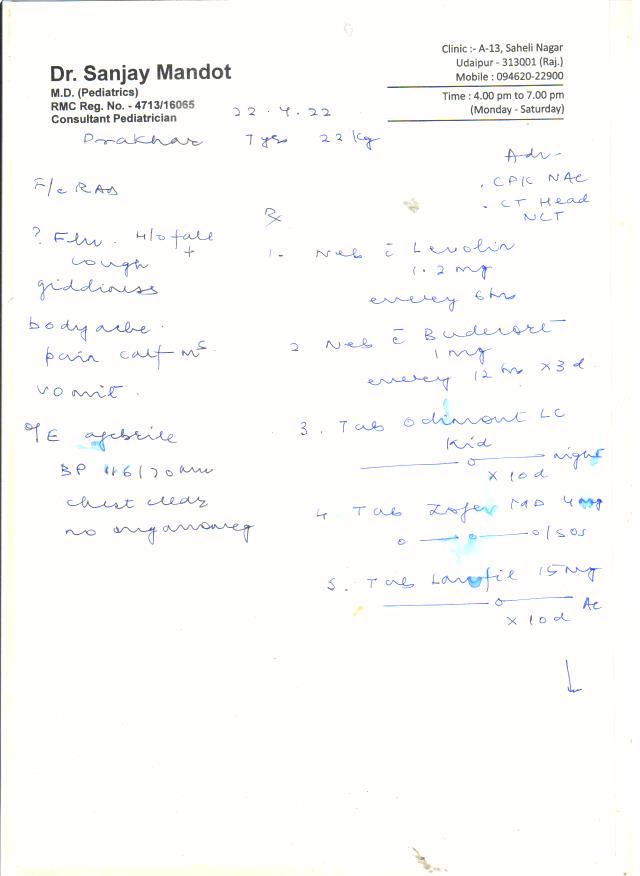 Dr. Sanjay Mandot
M.D. (Pediatrics)
RMC Reg. No. - 4713/16065
Consultant Pediatrician
Clinic :- A-13, Saheli Nagar
Udaipur - 313001 (Raj.)
Mobile : 094620-22900
Time : 4.00 pm to 7.00 pm
(Monday - Saturday)
22.4.22
Prakhar 7 yrs 22 kg
F/c RAD
? Flu. H/o fall
+
cough
giddiness
bodyache.
pain calf ms
vomit.
O/E afebrile
BP 116/70 mm
chest clear
no organomeg
Adv-
. CPK NAC
. CT Head
NCT
Rx
1. Neb c̄ Levolin
1.2 mg
every 6 hrs
2 Neb c̄ Budecort
1 mg
every 12 hrs x 3 d
3. Tab Odimont LC
Kid
night
x 10 d
4. Tab Zofer MD 4 mg
o o o/SOS
5. Tab Lanofil 15 mg
o AC
x 10 d